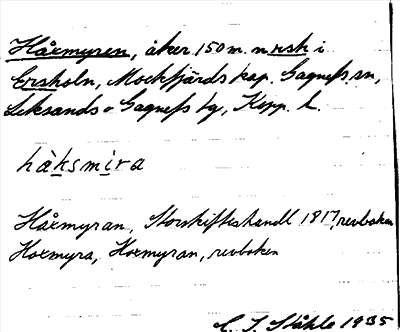 Hårmyren, åker 150 m. n rsk i
Ersholn, Mockfjärds kap. Gagnefs sn,
Leksands o Gagnefs tg, Kopp. l.
håksmira
Hårmyran, Storskifteshandl 1817, revboken
Hormyra, Hormyran, revboken
C. I. Ståhle 1935